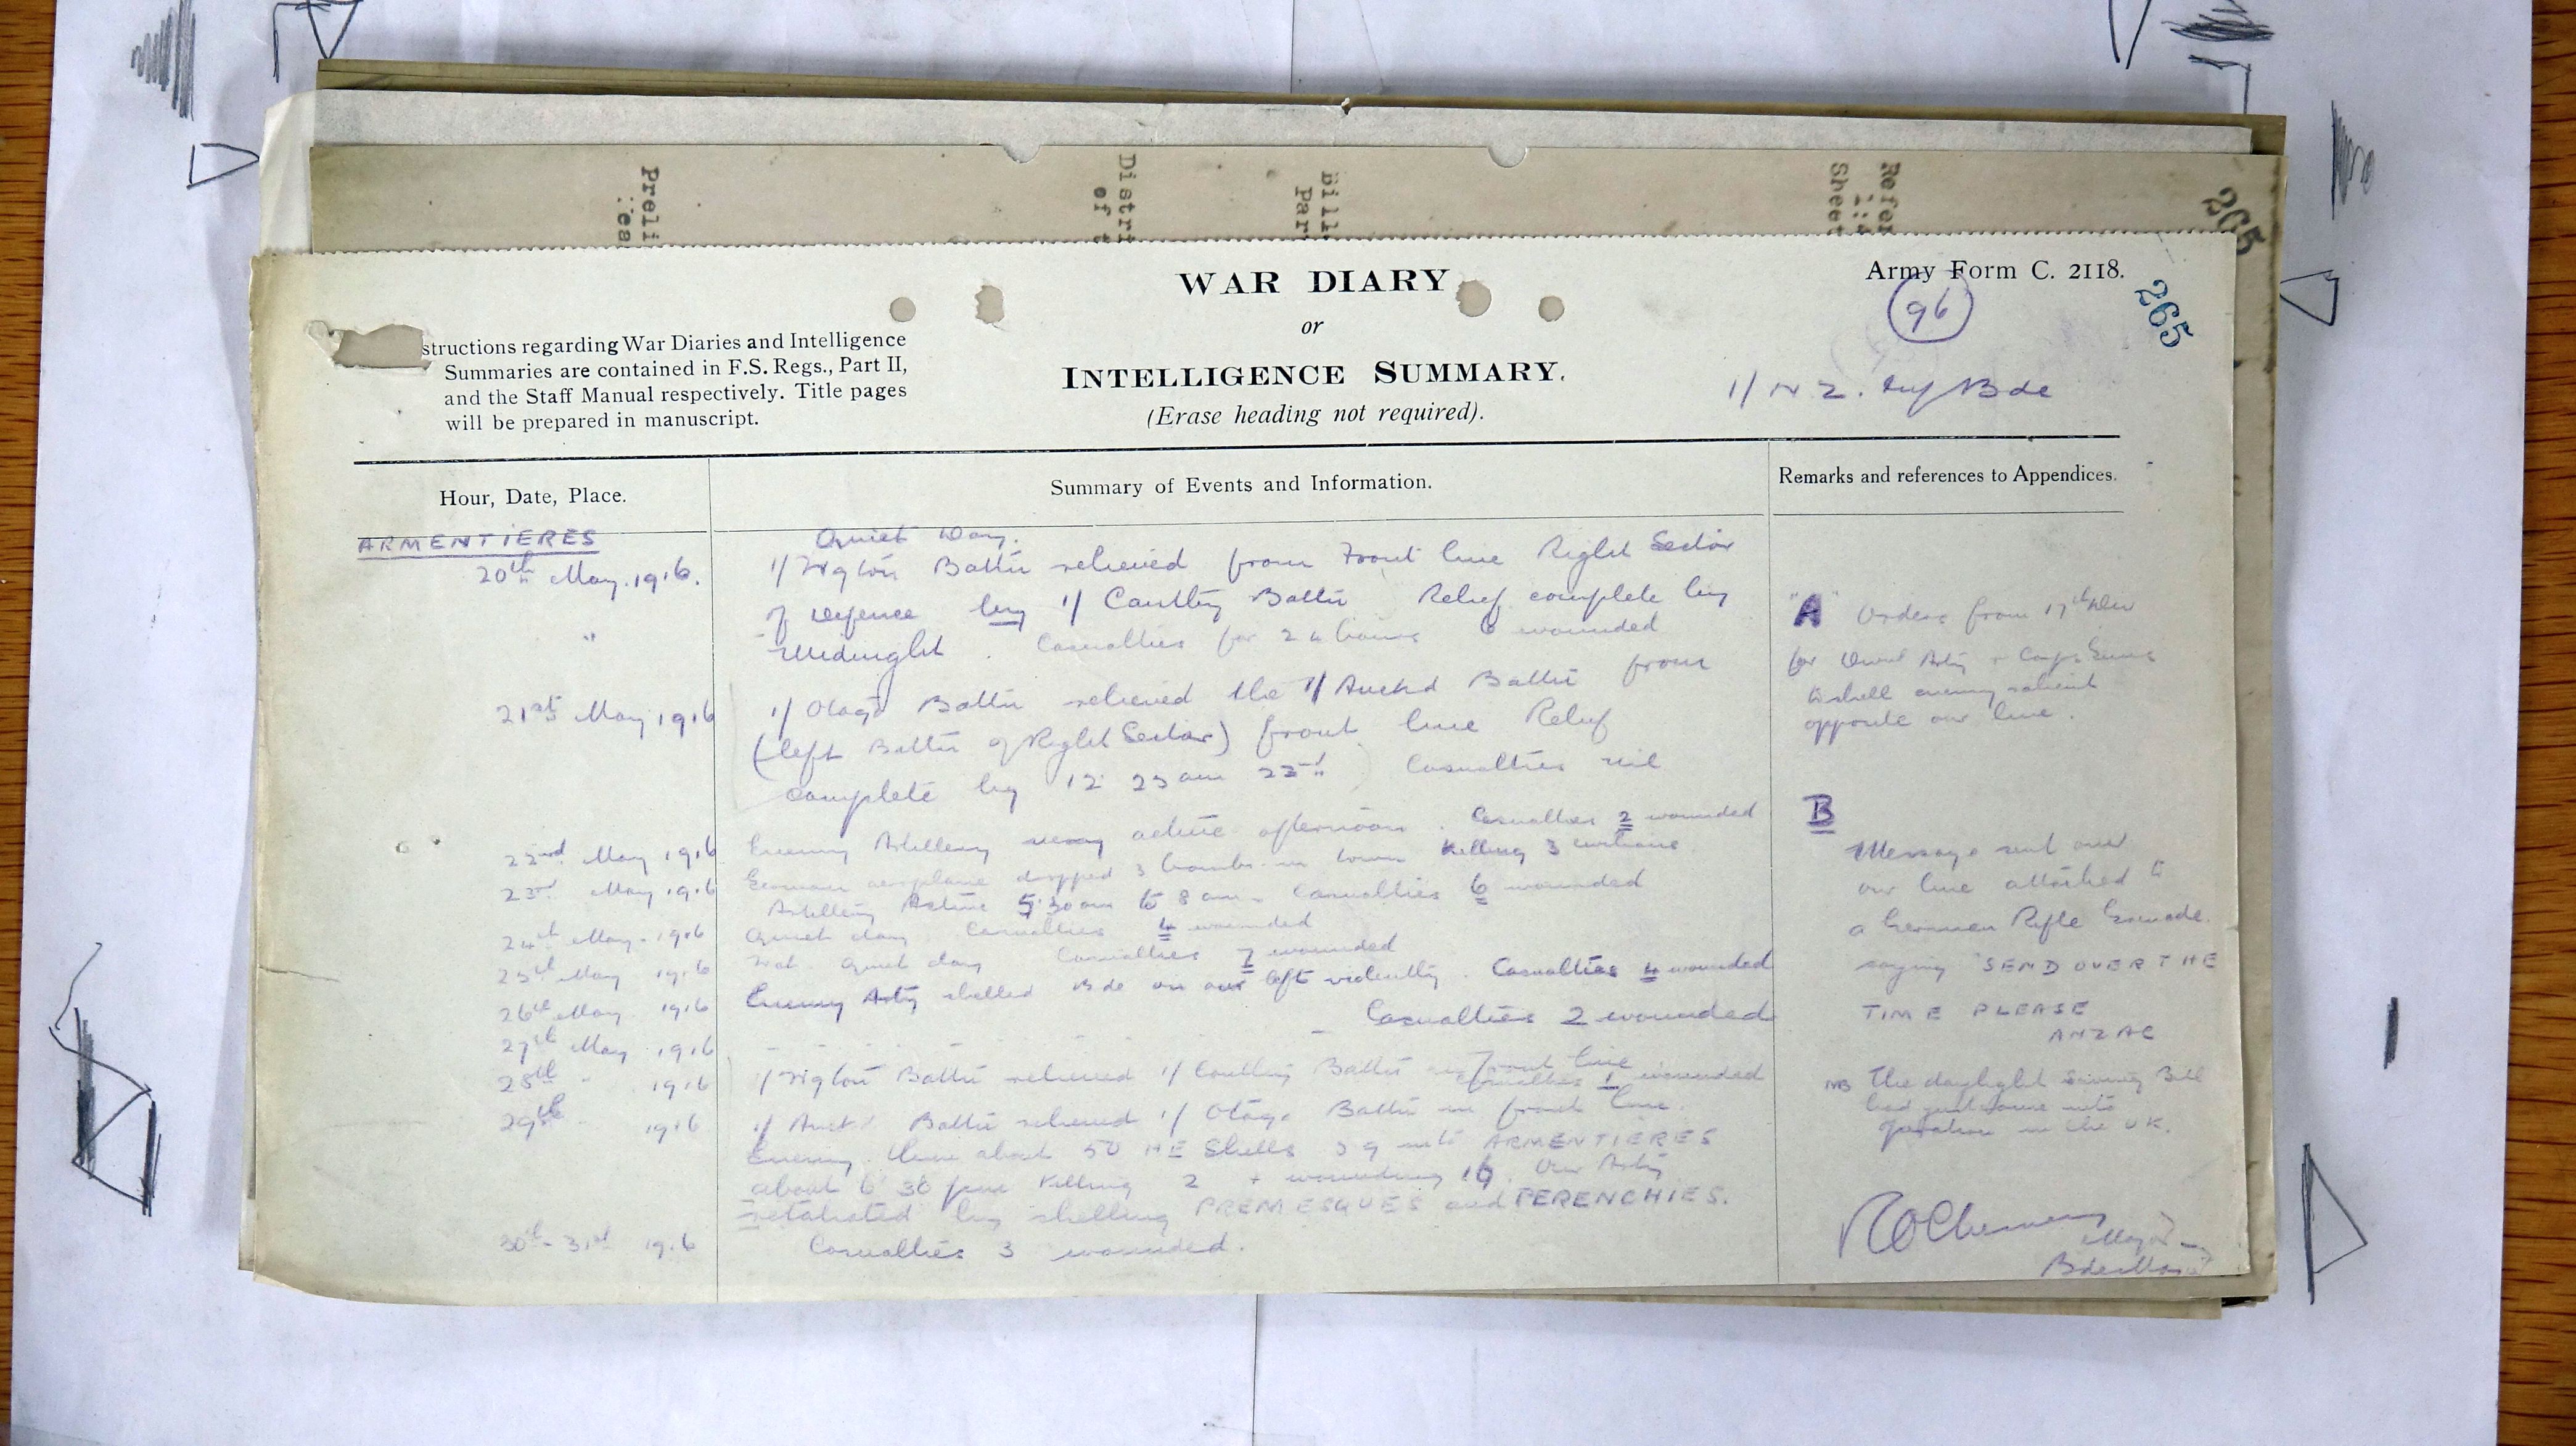 Preli
Distri
of t
Bill
Par
Refer
Sheet
265
WAR DIARY
or
INTELLIGENCE SUMMARY.
(Erase heading not required).
Army Form C. 2118.
96
265
structions regarding War Diaries and Intelligence
Summaries are contained in F.S. Regs., Part II,
and the Staff Manual respectively. Title pages
will be prepared in manuscript.
1/ N Z. Inf Bde
Hour, Date, Place.
Summary of Events and Information.
Remarks and references to Appendices.
ARMENTIERES
Quiet Day.
20th May. 1916.
1/ Wgton Battn relieved from Front line Right Sector
of Defence by 1/ Cantby Battn Relief complete by
"
Midnight. Casualties for 24 hours 6 wounded
21st May 1916
1/ Otago Battn relieved the 1/ Auckd Battn from
(left Battn of Right Sector) front line Relief
complete by 12 23 am 22nd Casualties nil
22nd May 1916
Enemy Artillery very active afternoon. Casualties 2 wounded
23rd May 1916
German aeroplane dropped 3 bombs in town killing 3 civilians
Artillery Active 5.30 am to 8 am. Casualties 6 wounded
24th May. 1916
Quiet day Casualties 4 wounded
25th May 1916
Wet. Quiet day Casualties 7 wounded
26th May 1916
Enemy Arty shelled Bde on our left violently. Casualties 4 wounded
27th May 1916
Casualties 2 wounded
28th " 1916
1/ Wgton Battn relieved 1/ Cantby Battn Front line
Casualties 1 wounded
29th 1916
1/ Auckd Battn relieved 1/ Otago Battn in front line.
Enemy threw about 50 HE Shells 5 9 into ARMENTIERES
about 6 30 pm killing 2 + wounding 16. Our Arty
retaliated by shelling PREMESQUES and PERENCHIES.
30th - 31st 1916
Casualties 3 wounded.
"A" Orders from 17th Div
for Divnl Arty + Corps Guns
to shell enemy salient
opposite our line.
B
Message sent over
our line attached to
a German Rifle Grenade.
saying "SEND OVER THE
TIME PLEASE
ANZAC
NB The daylight Saving Bill
had just come into
operation in the UK.
Major
Bde Major